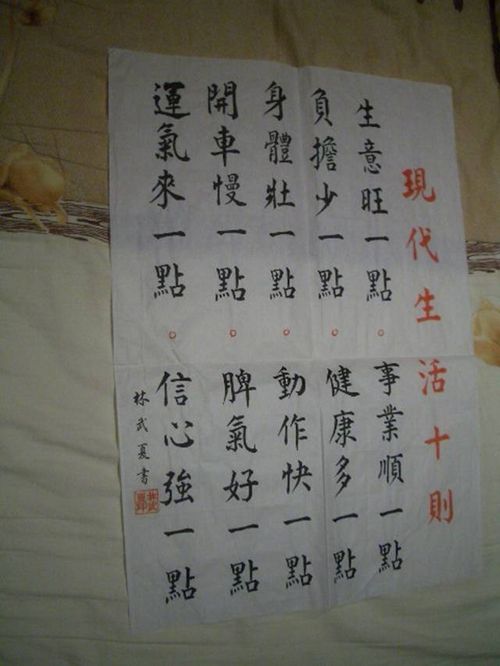 現代生活十則
生意旺一點。事業順一點
負擔少一點。健康多一點
身體壯一點。動作快一點
開車慢一點。脾氣好一點
運氣來一點。信心強一點
林武夏書